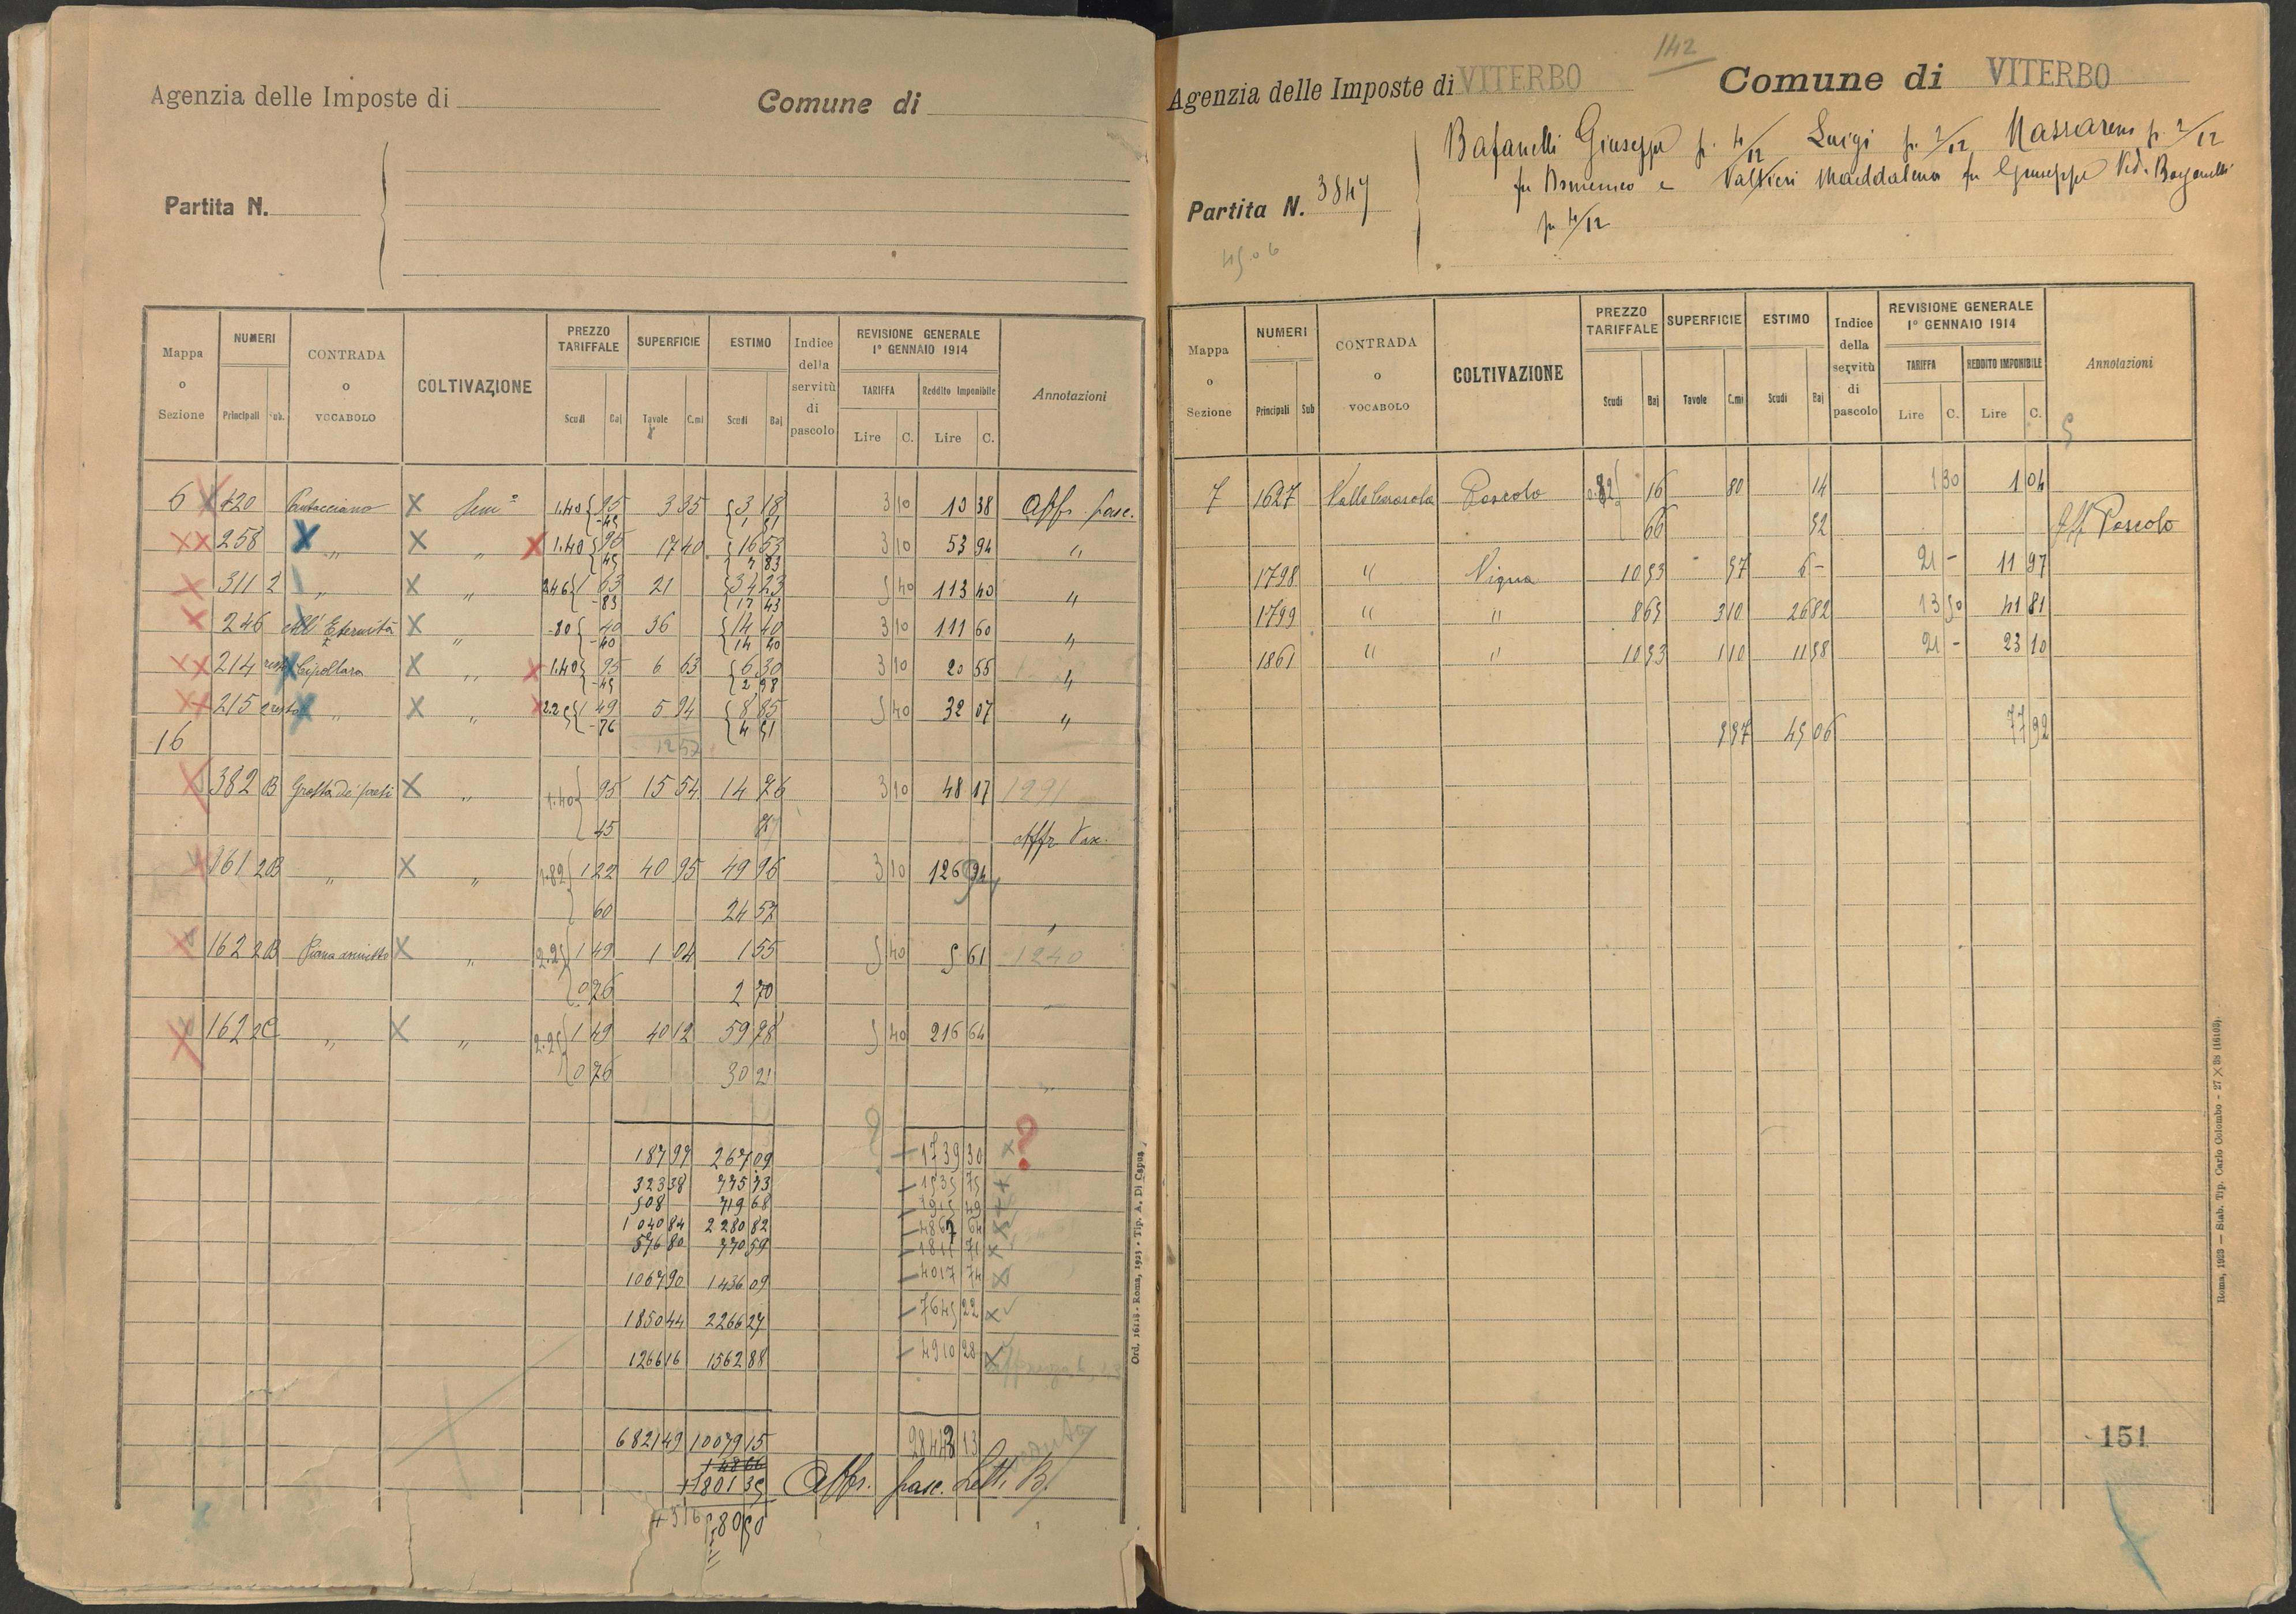 Agenzia delle Imposte di
Comune di
Partita N.
Mappa o Sezione
NUMERI
Principali
Sub.
CONTRADA o VOCABOLO
COLTIVAZIONE
PREZZO TARIFFALE
Scudi
Baj
SUPERFICIE
Tavole
C.mi
ESTIMO
Scudi
Baj
Indice della servitù di pascolo
REVISIONE GENERALE 1° GENNAIO 1914
TARIFFA
Reddito Imponibile
Lire
C.
Lire
C.
Annotazioni
6 420 X 1.40 95 3 35 3 18 3 10 13 38 Affr. pasc.
258 " X " 1.40 95 17 40 16 53 3 10 53 94 "
45 7 83
311 2 " X " 2.46 1 63 21 34 23 5 40 113 40 "
83 17 43
246 Eternità X " 80 40 36 14 40 3 10 111 60 "
40 14 40
214 Cipollara X " 1.40 95 6 63 6 30 3 10 20 55 "
45 2 98
215 " X " 2.25 1 49 5 94 8 85 5 40 32 07 "
76 4 51
16 1257
382 B Grotta de' X " 1.40 95 15 54 14 76 3 10 48 17 1291
45
161 2B " X " 1.82 1 22 40 95 49 96 3 10 126 94
60 24 57
162 2B X " 2.25 1 49 1 04 1 55 5 40 5 61 1240
0 76 2 70
162 2C " X " 2.25 1 49 40 12 59 78 5 40 216 64
0 76 30 21
187 99 267 09 1739 30 ?
323 38 775 73 1535 75
508 719 68 1915 49
1040 84 2280 82 4867 64
576 80 770 59 1811 71
1067 90 1436 09 4017 74
1850 44 2266 27 7645 22
1266 16 1562 88 4910 28
6821 49 10079 15 28443 13
+1801 35 Affr. pasc. Lett. B.
Ord. 16118 - Roma, 1923 - Tip. A. Di Capua
142
Agenzia delle Imposte di VITERBO
Comune di VITERBO
Partita N. 3847
Bafanelli Giuseppe p. 4/12 Luigi p. 2/12 Nazzareno p. 2/12
fu Domenico e Valtieri Maddalena fu Giuseppe Ved. Bafanelli
p. 4/12
45.06
Mappa o Sezione
NUMERI
Principali
Sub
CONTRADA o VOCABOLO
COLTIVAZIONE
PREZZO TARIFFALE
Scudi
Baj
SUPERFICIE
Tavole
C.mi
ESTIMO
Scudi
Baj
Indice della servitù di pascolo
REVISIONE GENERALE 1° GENNAIO 1914
TARIFFA
REDDITO IMPONIBILE
Lire
C.
Lire
C.
Annotazioni
7 1627 Pascolo 0.82 16 80 14 1 30 1 04
66 52 Aff. Pascolo
1798 " Vigna 10 53 57 6 - 21 - 11 97
1799 " " 8 65 3 10 26 82 13 50 41 81
1861 " " 10 53 1 10 11 58 21 - 23 10
5 57 45 06 77 92
151
Roma, 1923 — Stab. Tip. Carlo Colombo - 27 X 38 (16103)